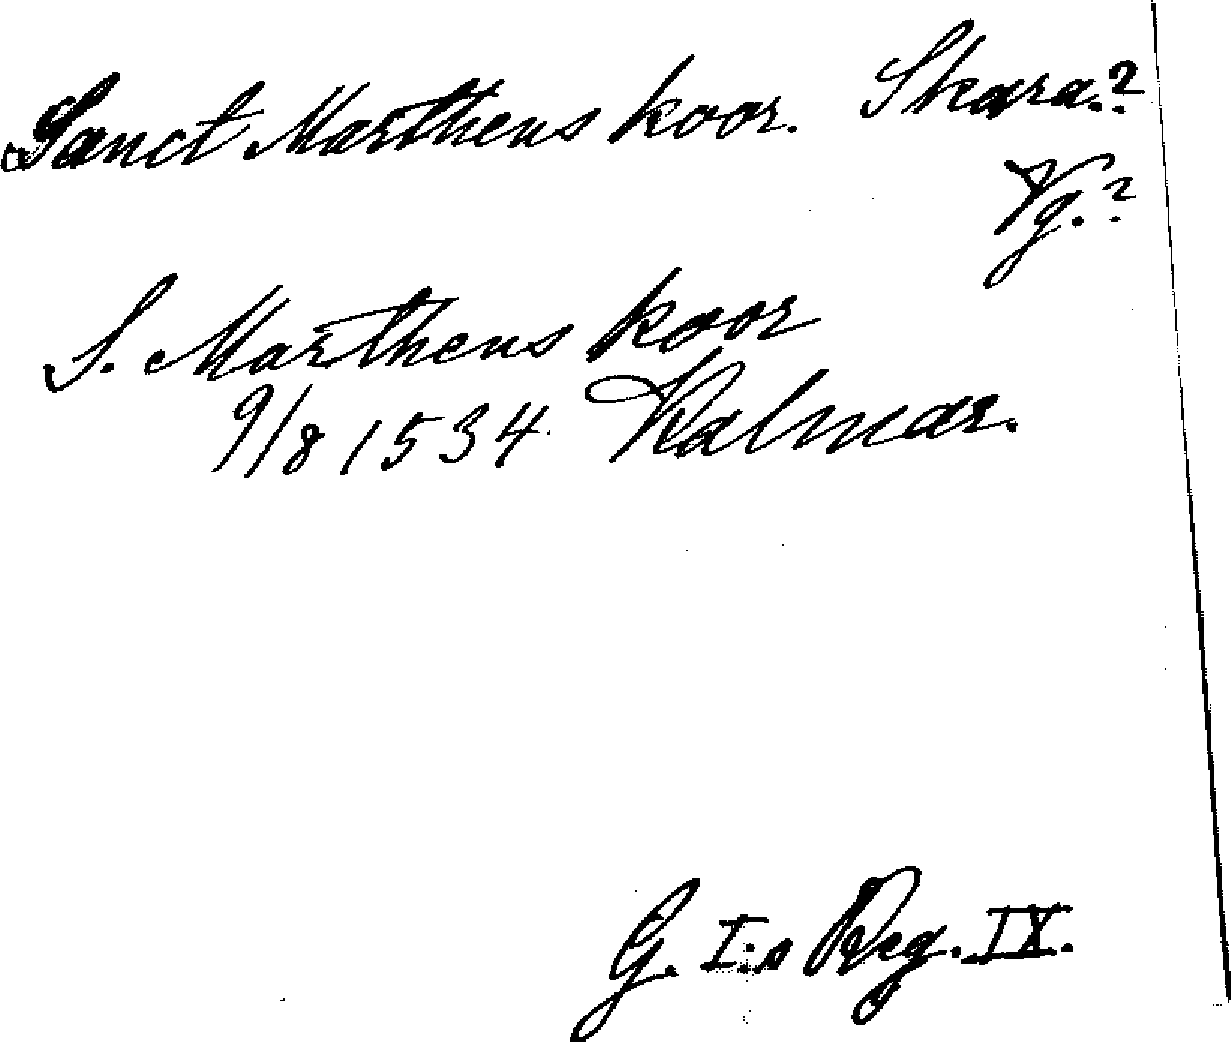 Sanct Marthens koor. Skara.?
Vg.?
S. Marthens koor
9/8 1534. Kalmar.
G. I:s Reg. IX.